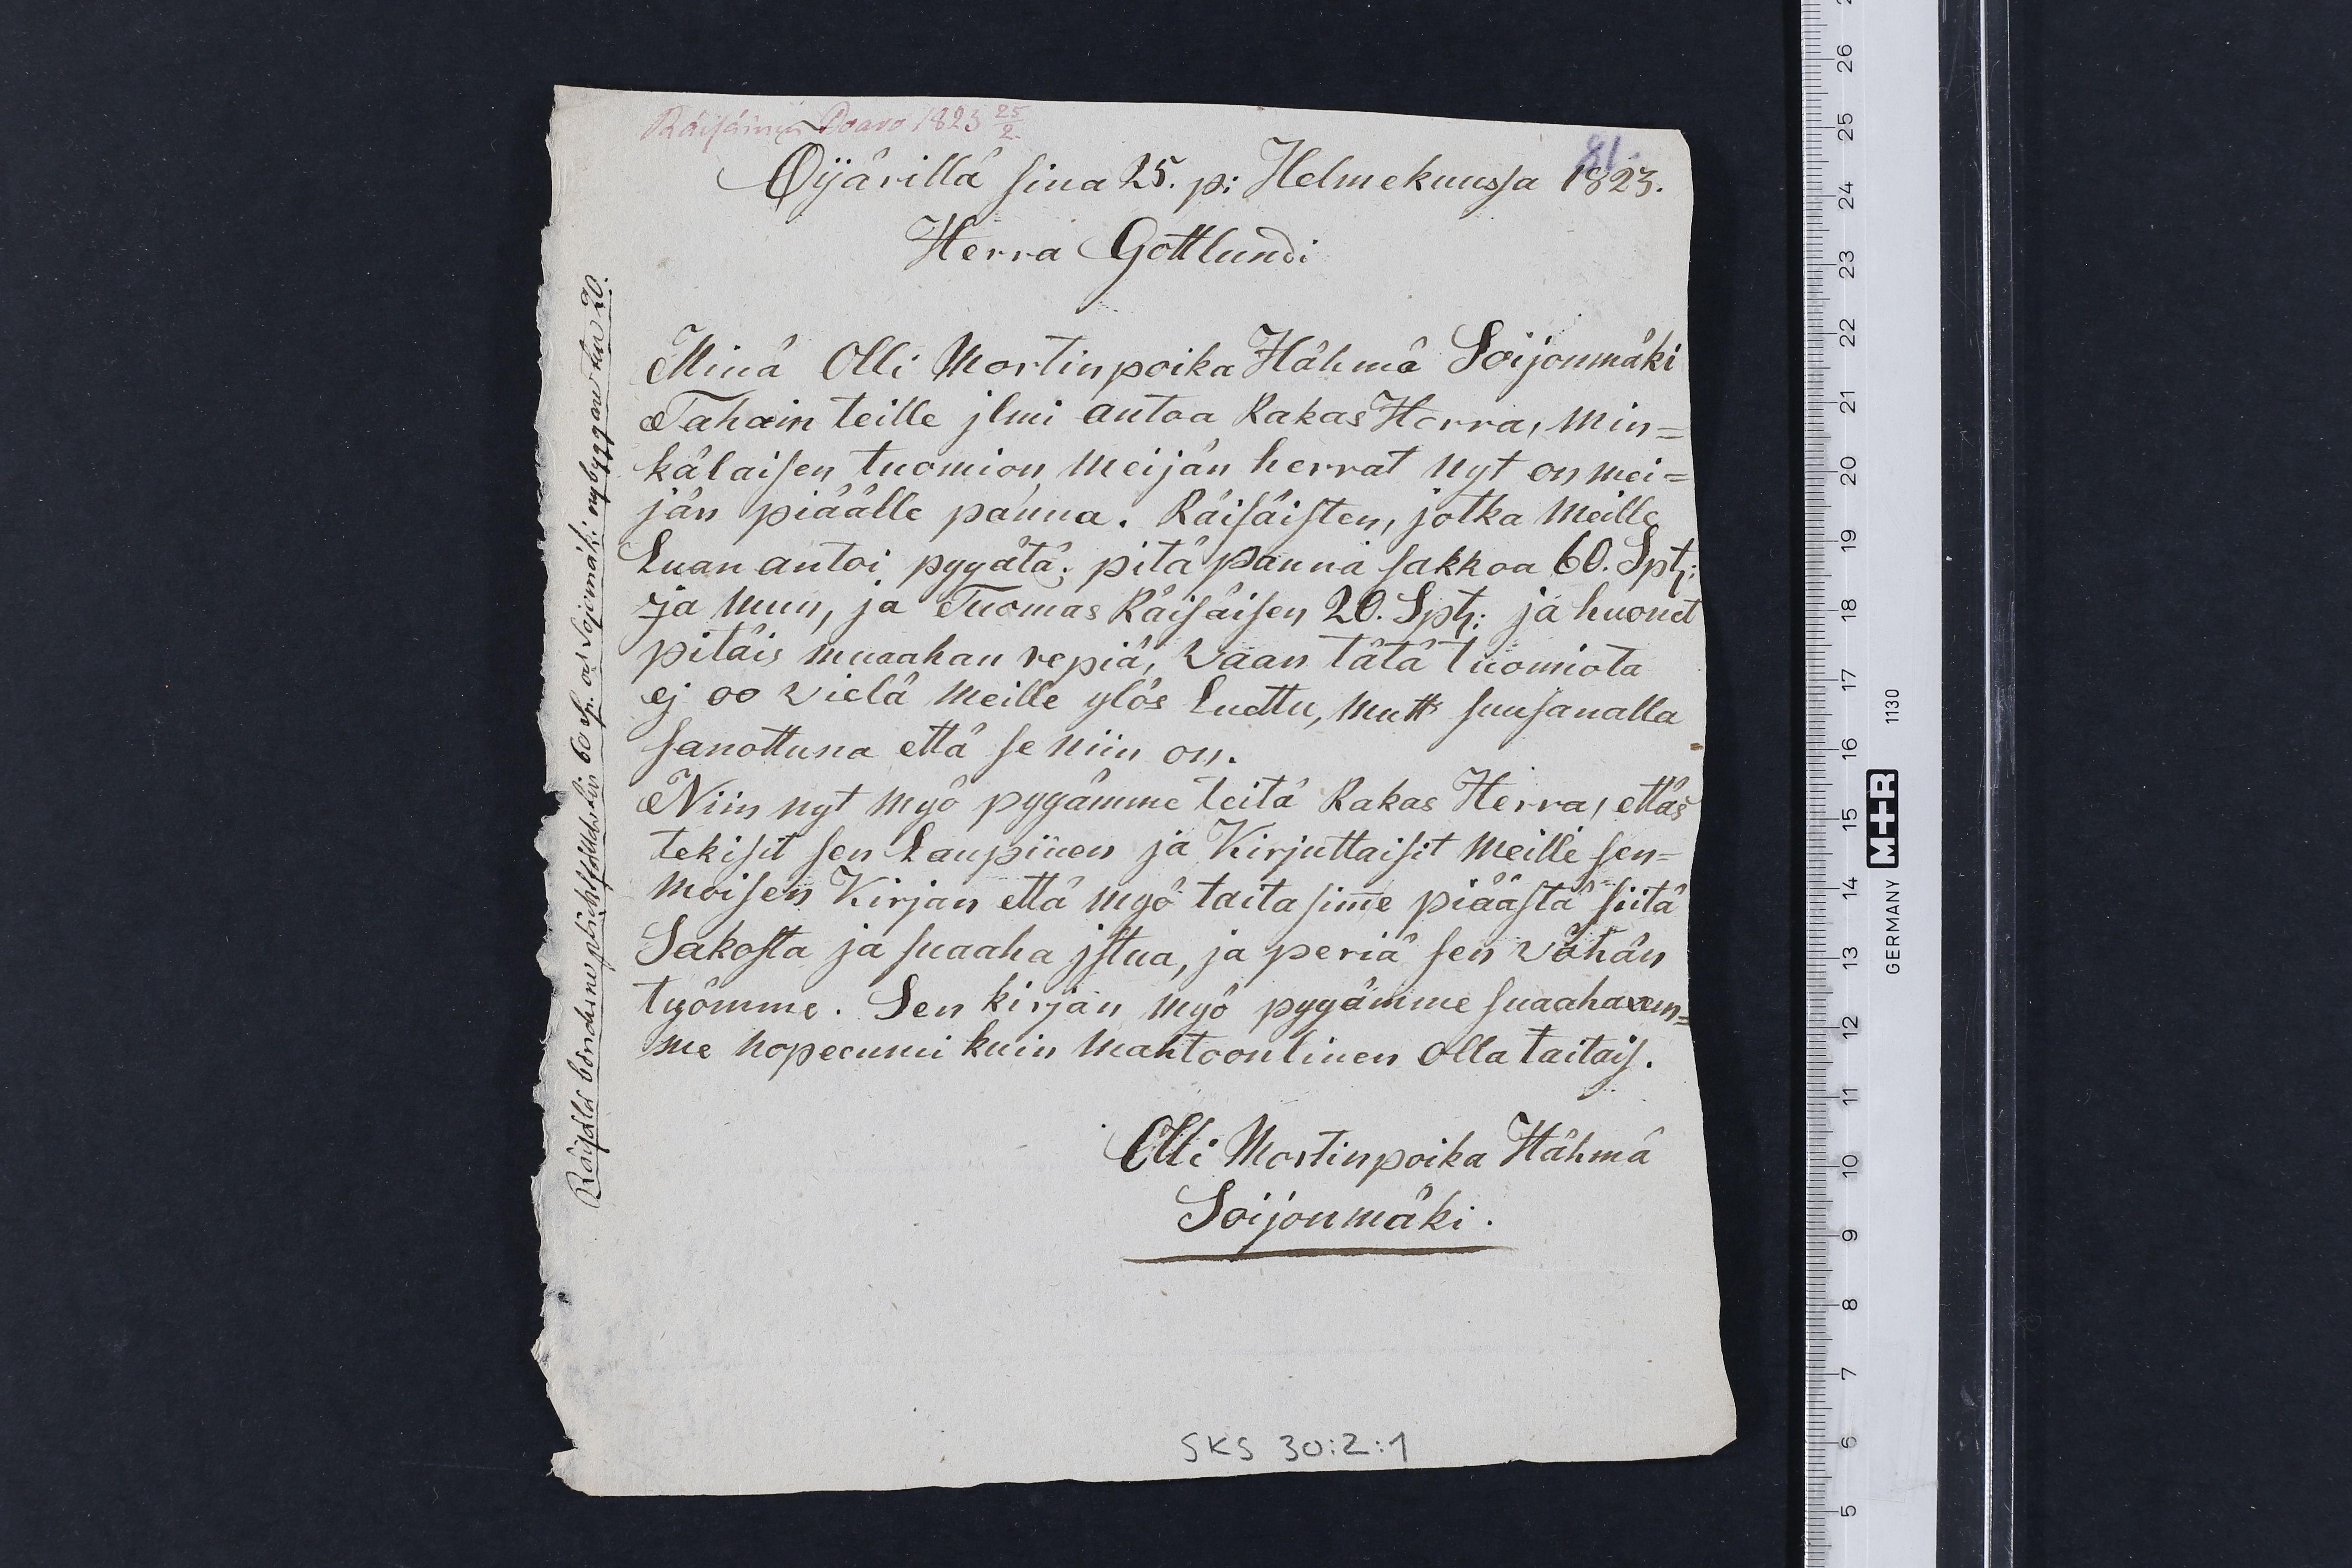 Räisäinen Poavo 1823 25/2.
81.
Öijärillä sina 25. p: Helmekuussa 1823.
Herra Gottlundi
Minä Olli Mortinpoika Hähmä Soijonmäki
Tahoin teille jlmi antoa Rakas Herra, Min=
kälaisen tuomion, meijän herrat nyt on mei=
jän piäälle panna. Räisäisten, jotka Meille
Luan antoi pyyätä; pitä panna sakkoa 60. Spth:
ja Mun, ja Tuomas Räisäisen 20. Spth: ja huonet
pitäis muaahan repiä, Vaan tätä tuomiota
ej oo vielä Meille ylös Luettu, Mutt suusanalla
sanottuna että se Niin on.
Niin nyt Myö pyyämme teitä Rakas Herra, ettäs
tekisit sen Laupiuen ja Kirjuttaisit Meille sen=
moisen Kirjan että Myö taitasim̅e piäästä siitä
Sakosta ja suaaha jstua, ja periä sen Vähän
työmme. Sen kirjan Myö pyyämme suaahaxem=
me Nopecumi kuin Mahtoonlinen Olla taitais.
Olli Mortinpoika Hähmä
Soijonmäki.
bönderne 60 Sp. och Sojomäki nybyggare 20.
SKS 30:2:1